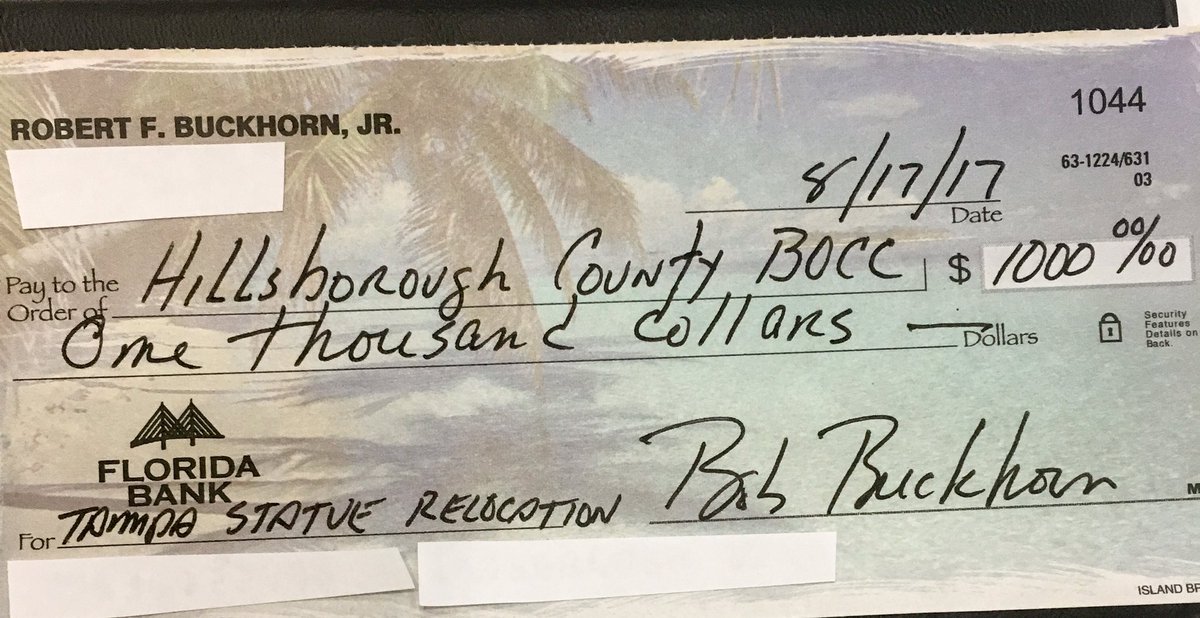 ROBERT F. BUCKHORN, JR.
1044
63-1224/631
03
8/17/17
Date
Pay to the
Order of
Hillsborough County BOCC
$ 1000 00/00
One thousand dollars
Dollars
Security
Features
Details on
Back.
FLORIDA
BANK
For TAMPA STATUE RELOCATION
Bob Buckhorn
M
ISLAND BR